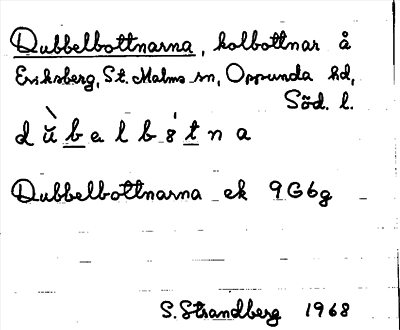 Dubbelbottnarna, kolbottnar å
Eriksberg, St. Malms sn, Oppunda hd,
Söd. l.
Dubbelbottnarna ek 9G6g
S. Strandberg 1968